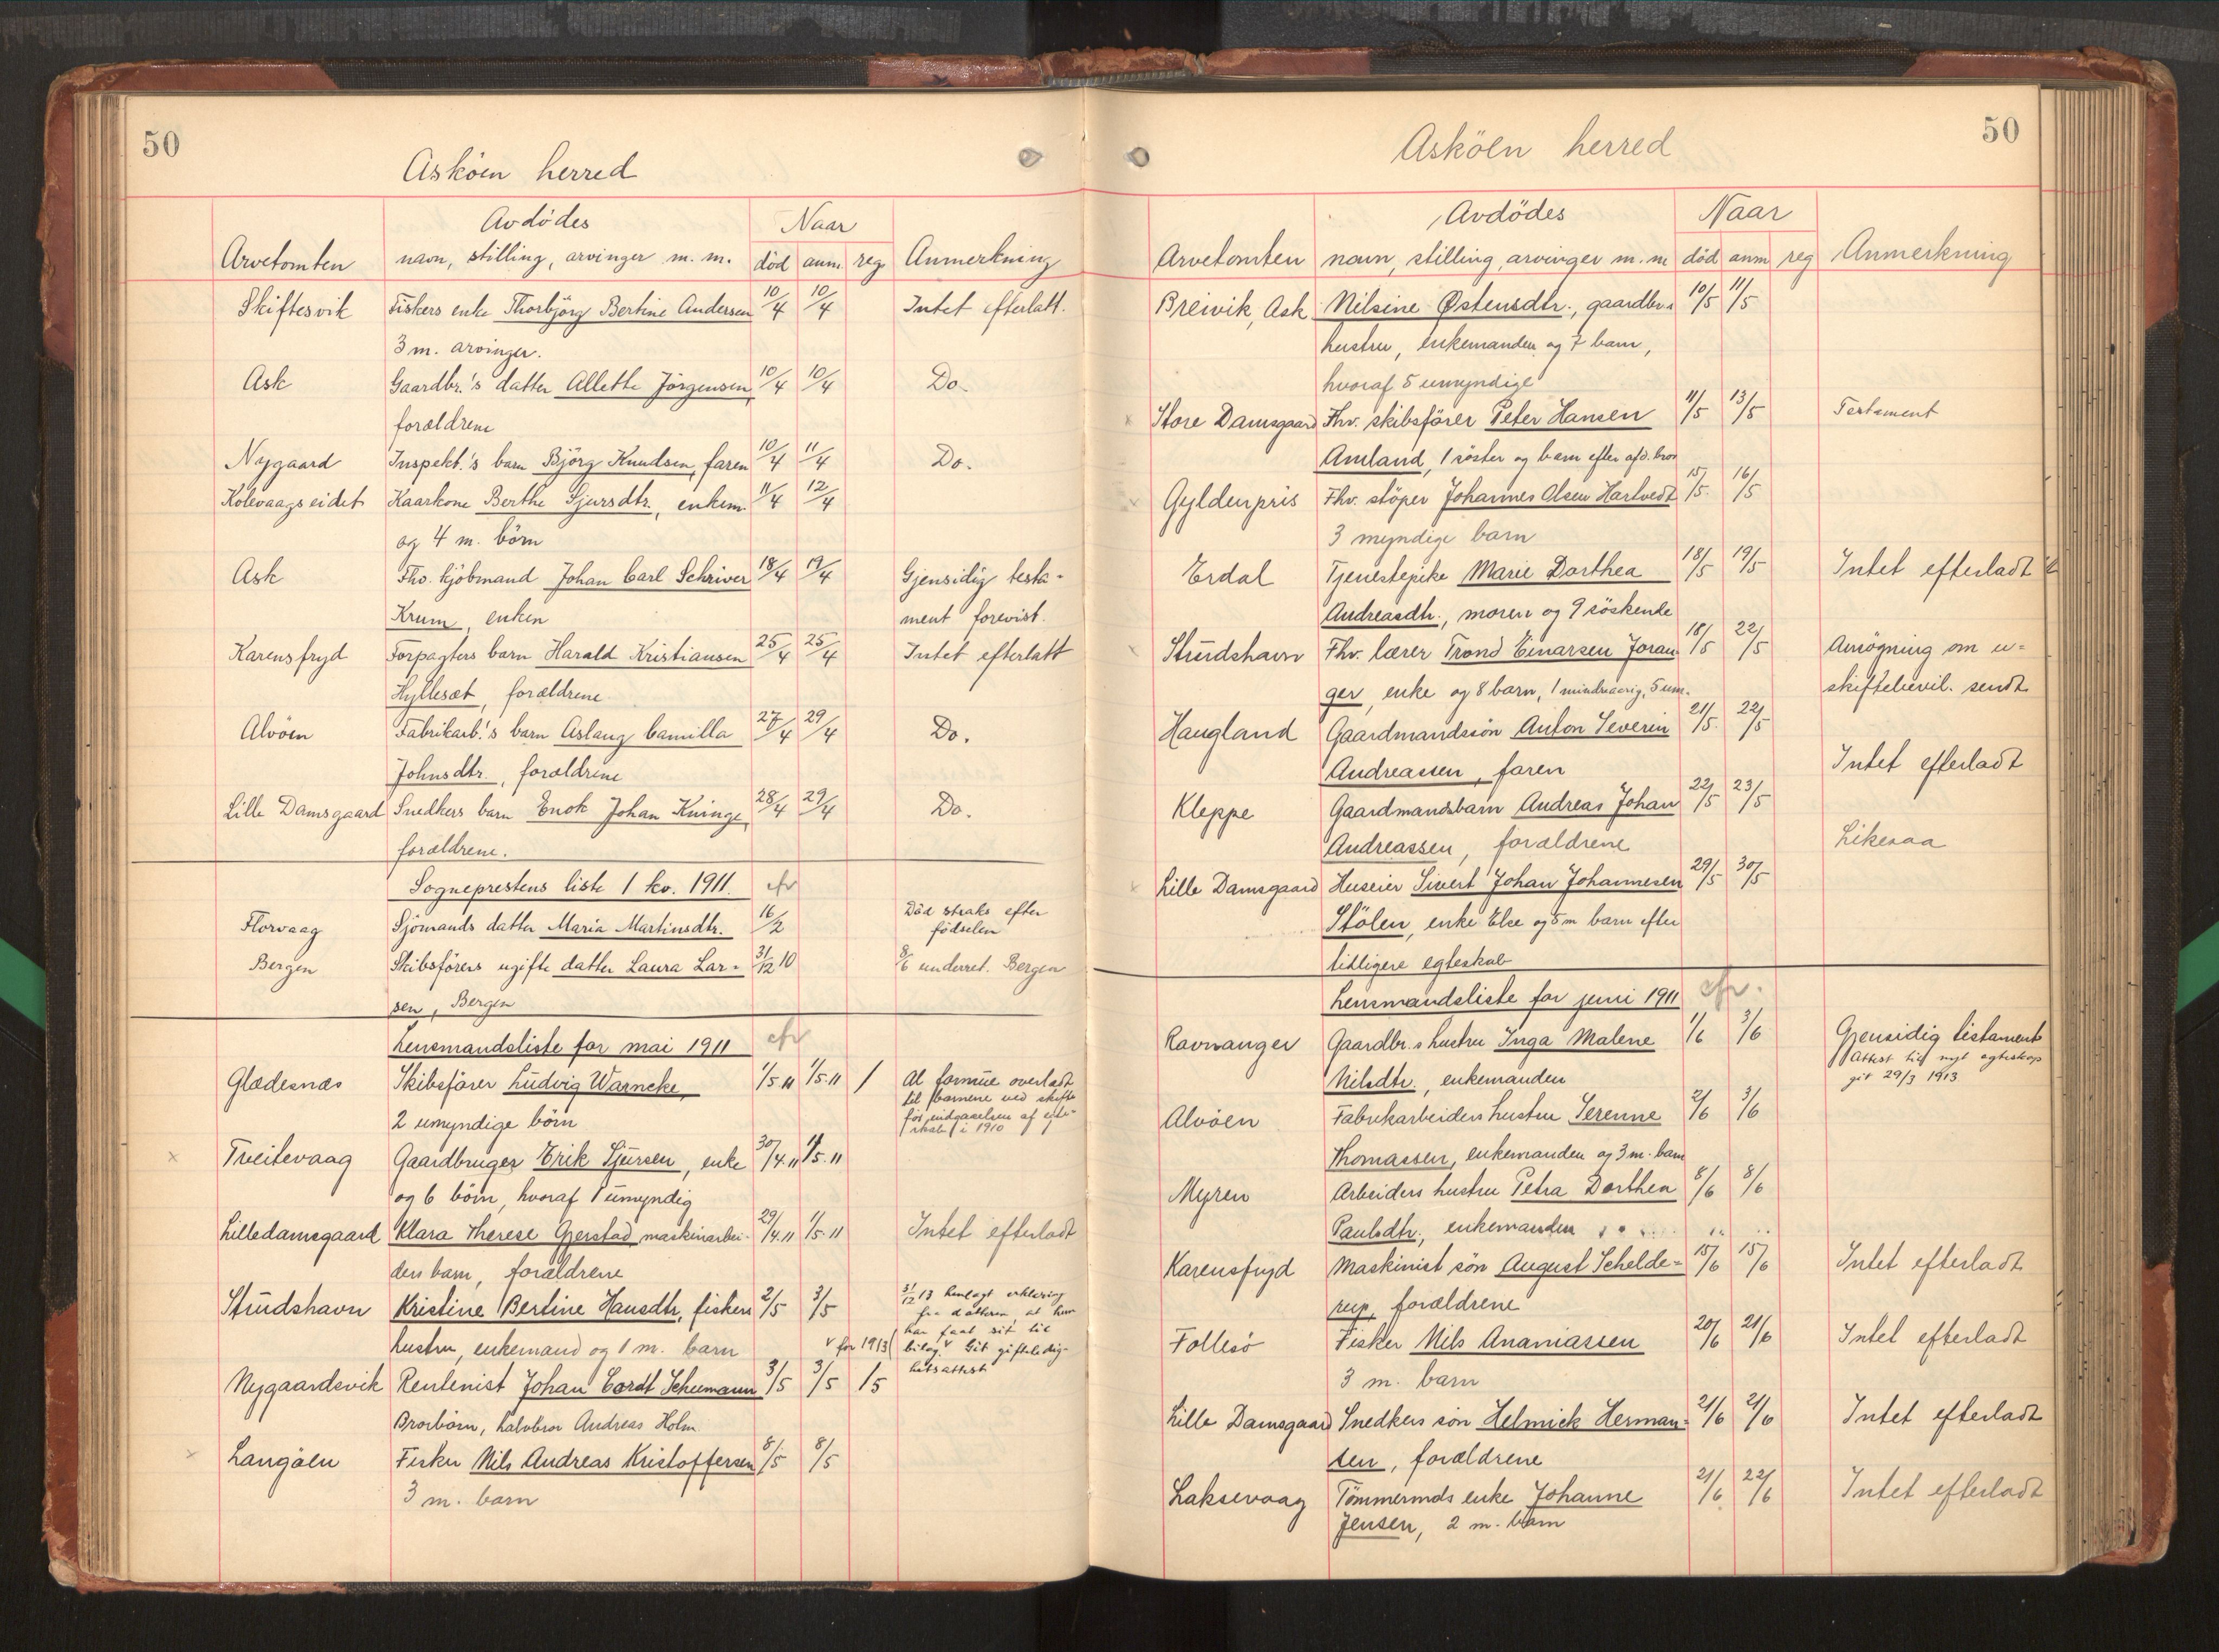 50
Asköen herred
Avdödes
Naar
Arvetomten navn, stilling, arvinger m. m. död anm. reg. Anmerkning
Skiftesvik Fiskers enke Thorbjörg Bertine Andersen 10/4 10/4 Intet efterlatt.
3 m. arvinger.
Ask Gaardbr.'s datter Allette Jörgensen, 10/4 10/4 Do.
forældrene
Nygaard Inspekt.'s barn Björg Knudsen, faren 10/4 11/4 Do.
Kolevaagseidet Kaarkone Berthe Sjursdtr., enkem. 11/4 12/4
og 4 m. börn
Ask Fhv. kjöbmand Johan Carl Schriver 18/4 19/4 Gjensidig testa-
Krum, enken ment forevist.
Karensfryd Forpagters barn Harald Kristiansen 25/4 25/4 Intet efterlatt
Hyllesæt, forældrene
Alvöen Fabrikarb.'s barn Aslaug Camilla 27/4 29/4 Do.
Johnsdtr., forældrene
Lille Damsgaard Snedkers barn Enok Johan Kninge, 28/4 29/4 Do.
forældrene.
Sogneprestens liste 1 kv. 1911. cfr
Florvaag Sjömands datter Maria Martinsdtr. 16/2 Död straks efter
födselen
Bergen Skibsförers ugifte datter Laura Lar- 31/12 10 8/6 underret. Bergen
sen, Bergen
Lensmandsliste for mai 1911 cfr
Glædesnæs Skibsförer Ludvig Warncke, 1/5 11 1/5.11 / Al formue overladt
til barnene ved skifte
2 umyndige börn för indgaaelsen af egte-
skab i 1910
x Treitevaag Gaardbruger Erik Sjursen, enke 30/4.11 1/5.11
og 6 börn, hvoraf 1 umyndig
Lilledamsgaard Klara Therese Gjerstad maskinarbei- 29/4.11 1/5.11 Intet efterladt
ders barn, forældrene
Strudshavn Kristine Bertine Hansdtr, fiskers 2/5 3/5 31/12 13 henlagt erklæring
fra datteren, at hun
har faat sit til
hustru, enkemand og 1 m. barn v for 1913 bilag v Git gifteledig-
hetsattest
Nygaardsvik Rentenist Johan Cordt Schumann 3/5 3/5 15
Brorbörn, halvbror Andreas Holm
x Langöen Fisker Nils Andreas Kristoffersen 8/5 8/5
3 m. barn
50
Asköen herred
Avdödes
Naar
Arvetomten navn, stilling, arvinger m. m död anm reg Anmerkning
Breivik, Ask Nilsine Østensdtr., gaardbr.s 10/5 11/5
hustru, enkemanden og 7 barn,
hvoraf 5 umyndige
x Store Damsgaard Fhv. skibsförer Peter Hansen 11/5 13/5 Testament
Amland, 1 söster og barn efter afd. bror
Gyldenpris Fhv. stöper Johannes Olsen Hartvedt 15/5 16/5
3 myndige barn
Erdal Tjenestepike Marie Dorthea 18/5 19/5 Intet efterladt
Andreasdtr., moren og 9 söskende
Strudshavn Fhv. lærer Trond Einarsen Joran- 18/5 22/5 Ansögning om u-
ger, enke og 8 barn, 1 mindreaarig, 5 um. skiftebevil. sendt
Haugland Gaardmandssön Anton Severin 21/5 22/5
Andreassen, faren Intet efterladt
Kleppe Gaardmandsbarn Andreas Johan 22/5 23/5
Andreassen, forældrene Likesaa
x Lille Damsgaard Huseier Sivert Johan Johannesen 29/5 30/5
Stölen, enke Else og 5 m barn efter
tidligere egteskab
Lensmandsliste for juni 1911 cfr.
Ravnanger Gaardbr.s hustru Inga Malene 1/6 3/6 Gjensidig testament
Nilsdtr., enkemanden Attest til nyt egteskap
git 29/3 1913
Alvöen Fabrikarbeiders hustru Serenne 2/6 3/6
Thomassen, enkemanden og 3 m. barn
Myren Arbeiders hustru Petra Dorthea 8/6 8/6
Paulsdtr., enkemanden
Karensfryd Maskinist sön August Schelde- 15/6 15/6 Intet efterladt
rup, forældrene
Follesö Fisker Nils Ananiassen 20/6 21/6 Intet efterladt
3 m. barn
Lille Damsgaard Snedkers sön Helmick Herman- 21/6 21/6 Intet efterladt
sen, forældrene
Laksevaag Tömmermds enke Johanne 21/6 22/6 Intet efterladt
Jensen, 2 m. barn